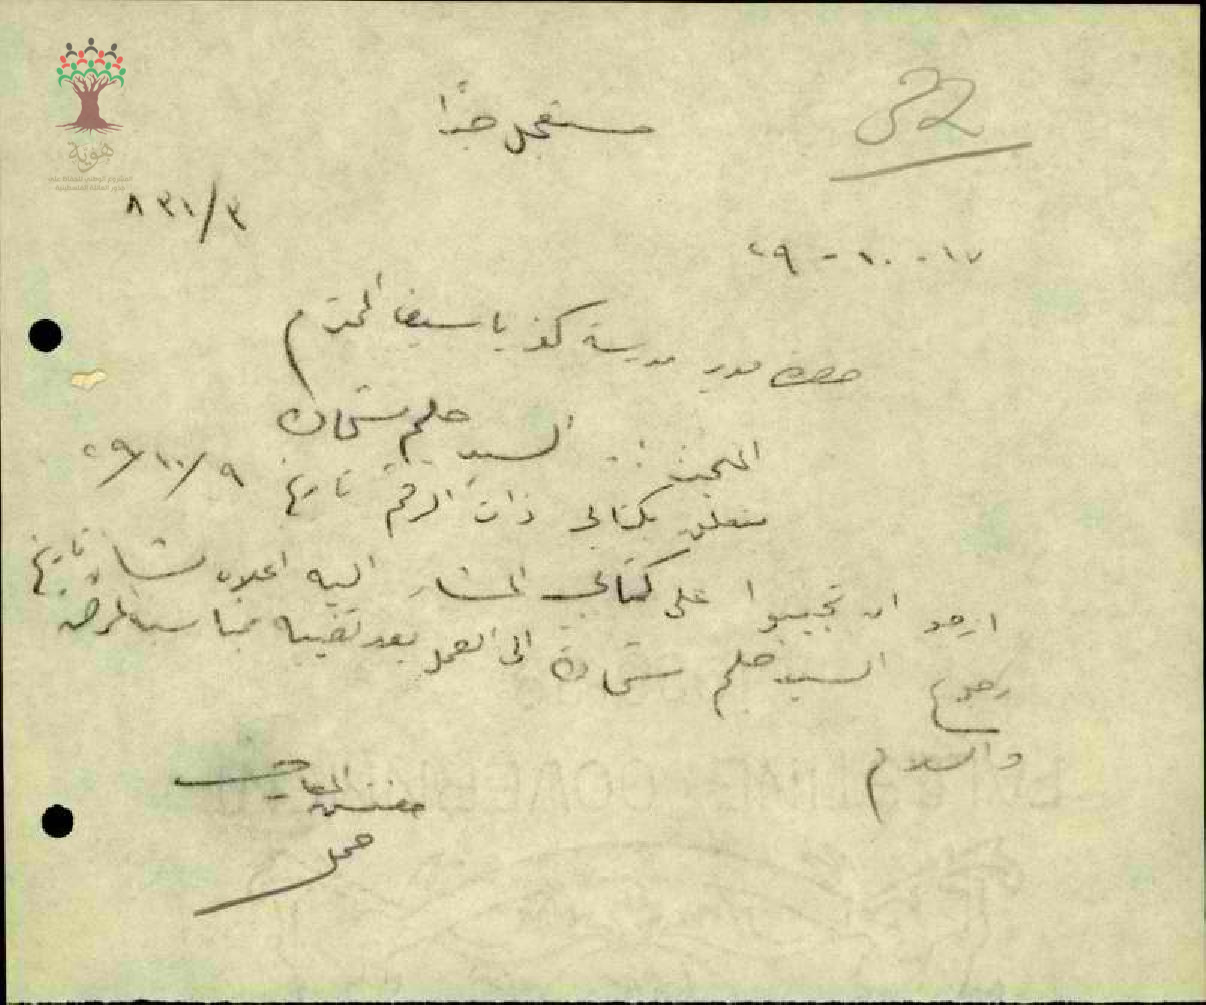 هوية
المشروع الوطني للحفاظ على
جذور العائلة الفلسطينية
32
مستعجل جدًا
٨٣١/٣
١٧ - ١٠ - ٢٩
حضرة مدير مدرسة كفر ياسيف المحترم
السيد حليم شحادة
متعلق بكتابي ذات الرقم تاريخ ٩/١٠/٢٩
ارجو ان تجيبوا على كتابي المشار اليه اعلاه بشأن تاريخ
رجوع السيد حليم شحادة الى العمل بعد تغيبه بمناسبة المرض
والسلام
مفتش المعارف